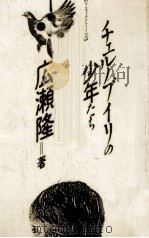 チェルノブイリの
少年たち
広瀬隆=著